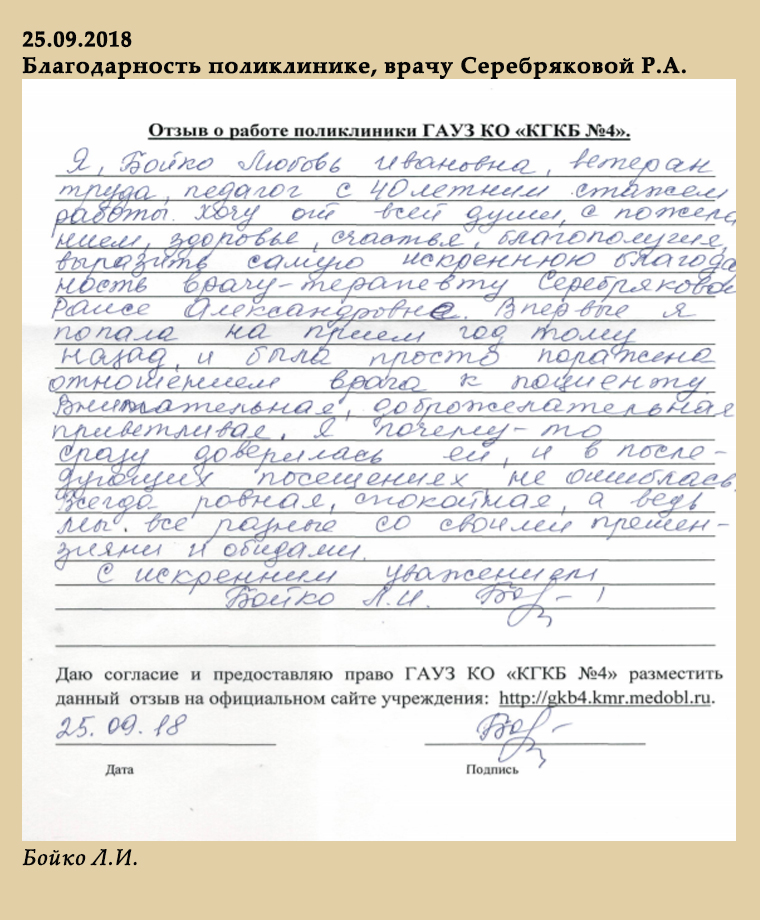 25.09.2018
Благодарность поликлинике, врачу Серебряковой Р.А.
Отзыв о работе поликлиники ГАУЗ КО «КГКБ №4».
Я, Бойко Любовь Ивановна, ветеран
труда, педагог с 40летним стажем
работы. Хочу от всей души, с пожела
нием, здоровье, счастья, благополучия,
выразить самую искреннюю благода
ность врачу-терапевту Серебряковой
Раисе Александровне. Впервые я
попала на прием год тому
назад, и была просто поражена
отношением врача к пациенту.
Внимательная, доброжелательная
приветливая. Я почему-то
сразу доверилась ей, и в после-
дующих посещениях не ошиблась.
Всегда ровная, спокойная, а ведь
мы все разные со своими претен-
зиями и обидами.
С искренним уважением
Бойко Л.И.
Даю согласие и предоставляю право ГАУЗ КО «КГКБ №4» разместить
данный отзыв на официальном сайте учреждения: http://gkb4.kmr.medobl.ru.
25.09.18
Дата Подпись
Бойко Л.И.